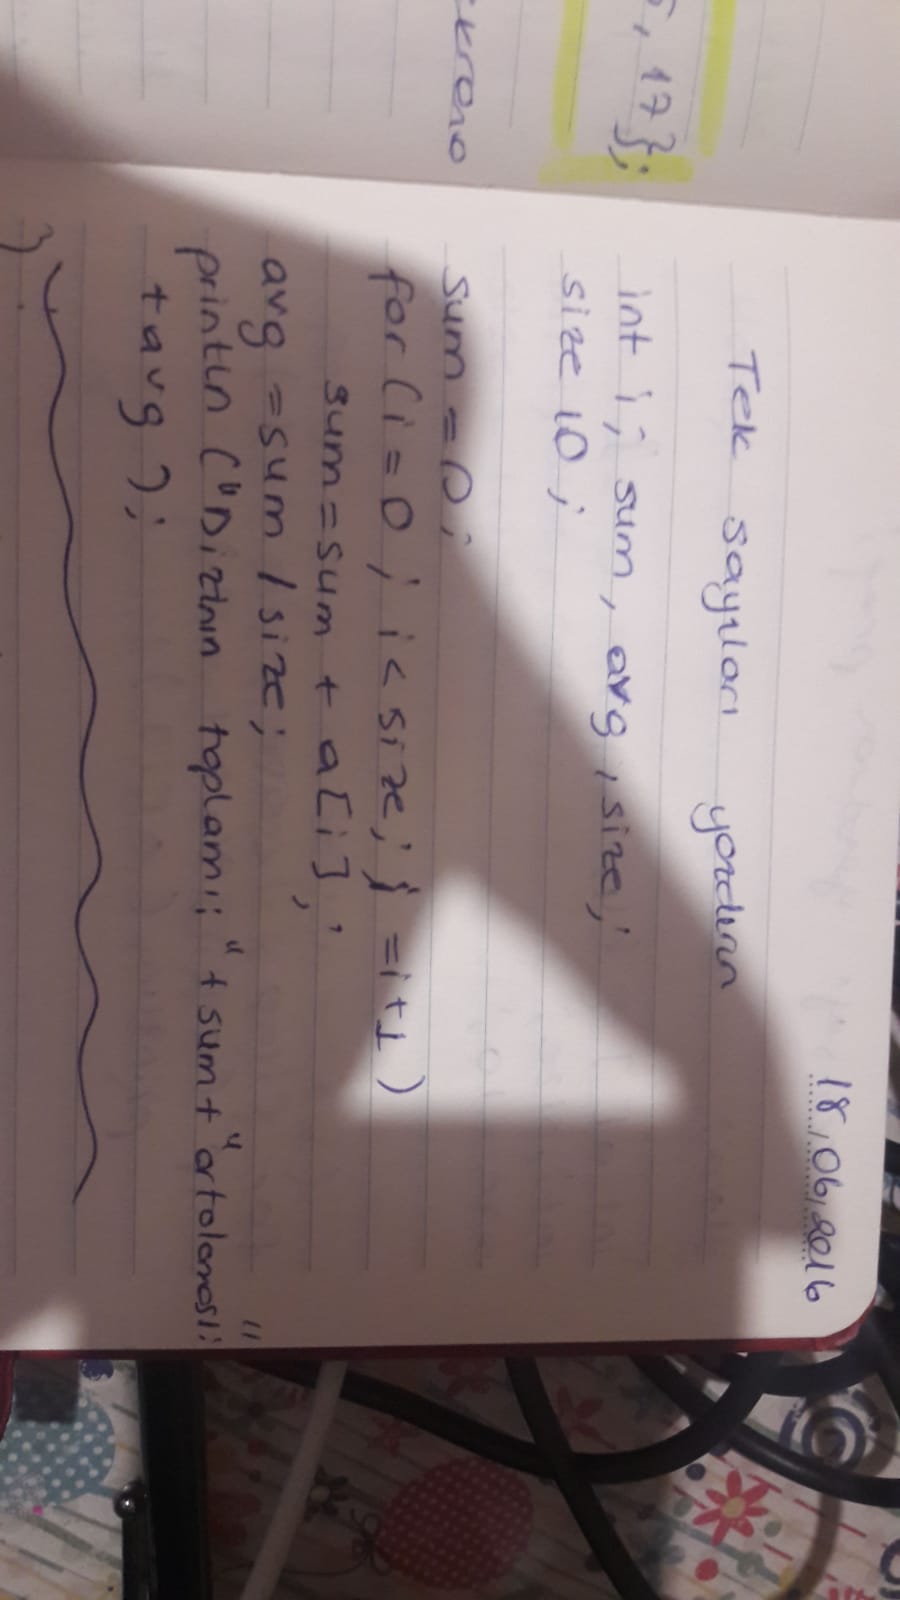 5, 17};
ekrana
18.06.2016
Tek sayıları yazdıran
int i, sum, avg, size;
size 10;
sum = 0;
for (i = 0; i < size; i = i+1)
sum = sum + a[i];
avg = sum / size;
println ("Dizinin toplamı: " + sum + "ortalaması: "
+ avg);
}